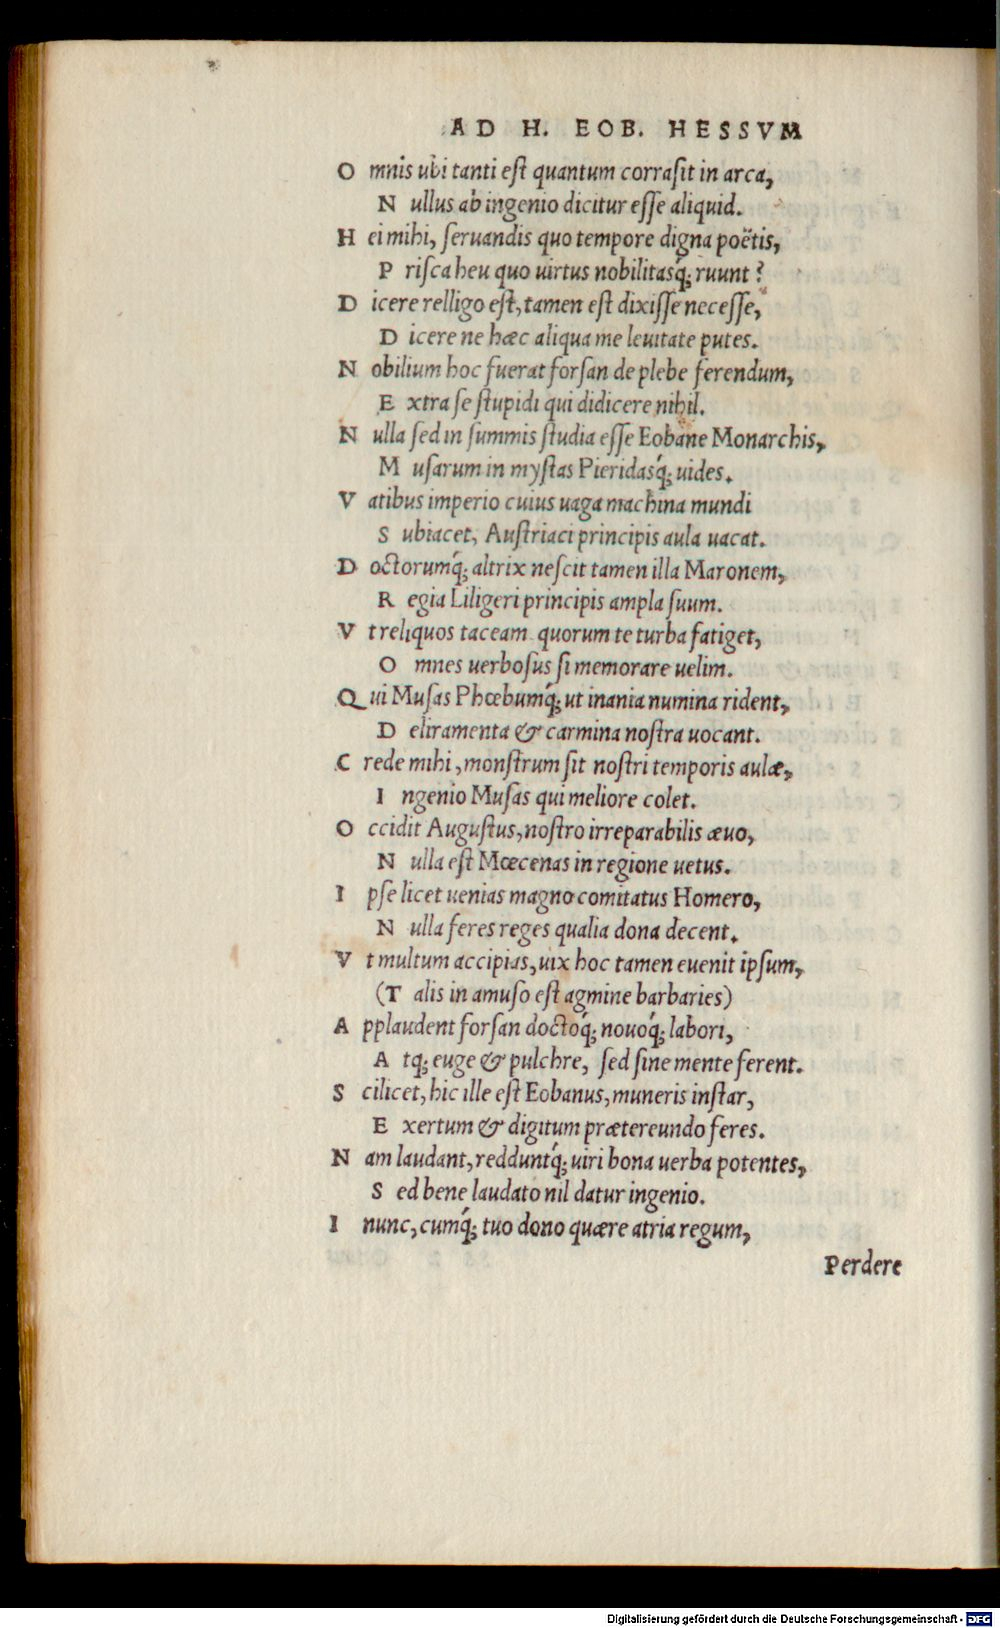 AD H. EOB. HESSVM
O mnis ubi tanti eſt quantum corraſit in arca,
N ullus ab ingenio dicitur eſſe aliquid.
H ei mihi, ſeruandis quo tempore digna poëtis,
P riſca heu quo uirtus nobilitasq́; ruunt?
D icere relligo eſt, tamen eſt dixiſſe neceſſe,
D icere ne hæc aliqua me leuitate putes.
N obilium hoc fuerat forſan de plebe ferendum,
E xtra ſe ſtupidi qui didicere nihil.
N ulla ſed in ſummis ſtudia eſſe Eobane Monarchis,
M uſarum in myſtas Pieridasq́; uides.
V atibus imperio cuius uaga machina mundi
S ubiacet, Auſtriaci principis aula uacat.
D octorumq́; altrix neſcit tamen illa Maronem,
R egia Liligeri principis ampla ſuum.
V t reliquos taceam quorum te turba fatiget,
O mnes uerboſus ſi memorare uelim.
Q ui Muſas Phœbumq́; ut inania numina rident,
D eliramenta & carmina noſtra uocant.
C rede mihi, monſtrum ſit noſtri temporis aulæ,
I ngenio Muſas qui meliore colet.
O ccidit Auguſtus, noſtro irreparabilis æuo,
N ulla eſt Mœcenas in regione uetus.
I pſe licet uenias magno comitatus Homero,
N ulla feres reges qualia dona decent.
V t multum accipias, uix hoc tamen euenit ipſum,
(T alis in amuſo eſt agmine barbaries)
A pplaudent forſan doctoq́; nouoq́; labori,
A tq; euge & pulchre, ſed ſine mente ferent.
S cilicet, hic ille eſt Eobanus, muneris inſtar,
E xertum & digitum prætereundo feres.
N am laudant, redduntq́; uiri bona uerba potentes,
S ed bene laudato nil datur ingenio.
I nunc, cumq́; tuo dono quære atria regum,
Perdere
Digitalisierung gefördert durch die Deutsche Forschungsgemeinschaft - DFG